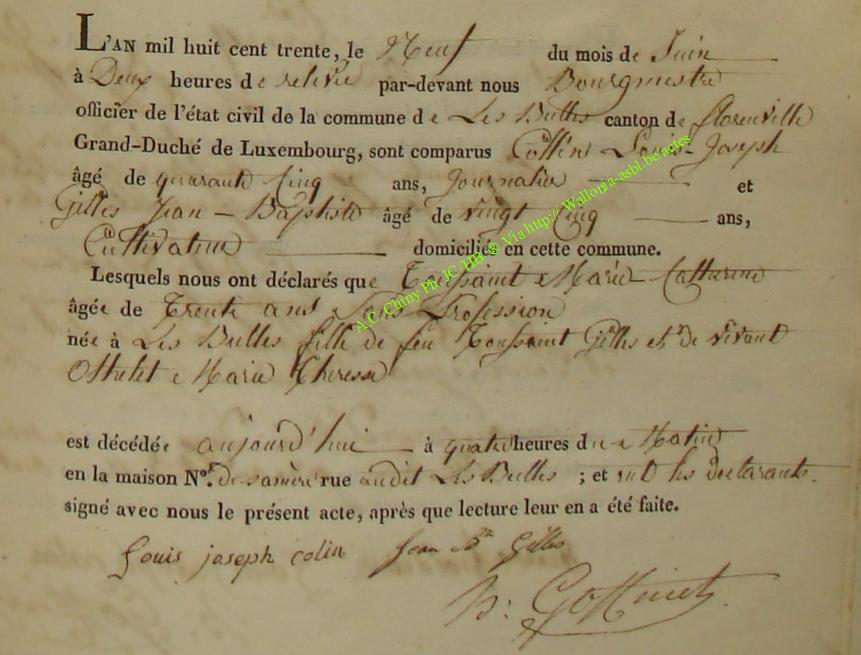 L'AN mil huit cent trente, le Neuf du mois de Juin
à Deux heures de relevée par-devant nous Bourgmestre
officier de l'état civil de la commune de Les Bulles canton de florenville
Grand-Duché de Luxembourg, sont comparus Collin Louis-Joseph
âgé de quarante Cinq ans, Journalier et
Gilles Jean-Baptiste âgé de vingt Cinq ans,
Cultivateur domiciliés en cette commune.
Lesquels nous ont déclarés que Toussaint Marie Catherine
âgée de Trente ans Sans Profession
née à Les Bulles fille de feu Toussaint Gilles et de vivant
Marie Theresse
est décédée aujourd'hui à quatre heures du Matin
en la maison Nor. de sa mère rue audit Les Bulles ; et ont les declarants
signé avec nous le présent acte, après que lecture leur en a été faite.
Louis joseph colin Jean Bte Gilles
A.C. Chiny Ph. JC/HB ® Via http://Wallonia-asbl.be/actes